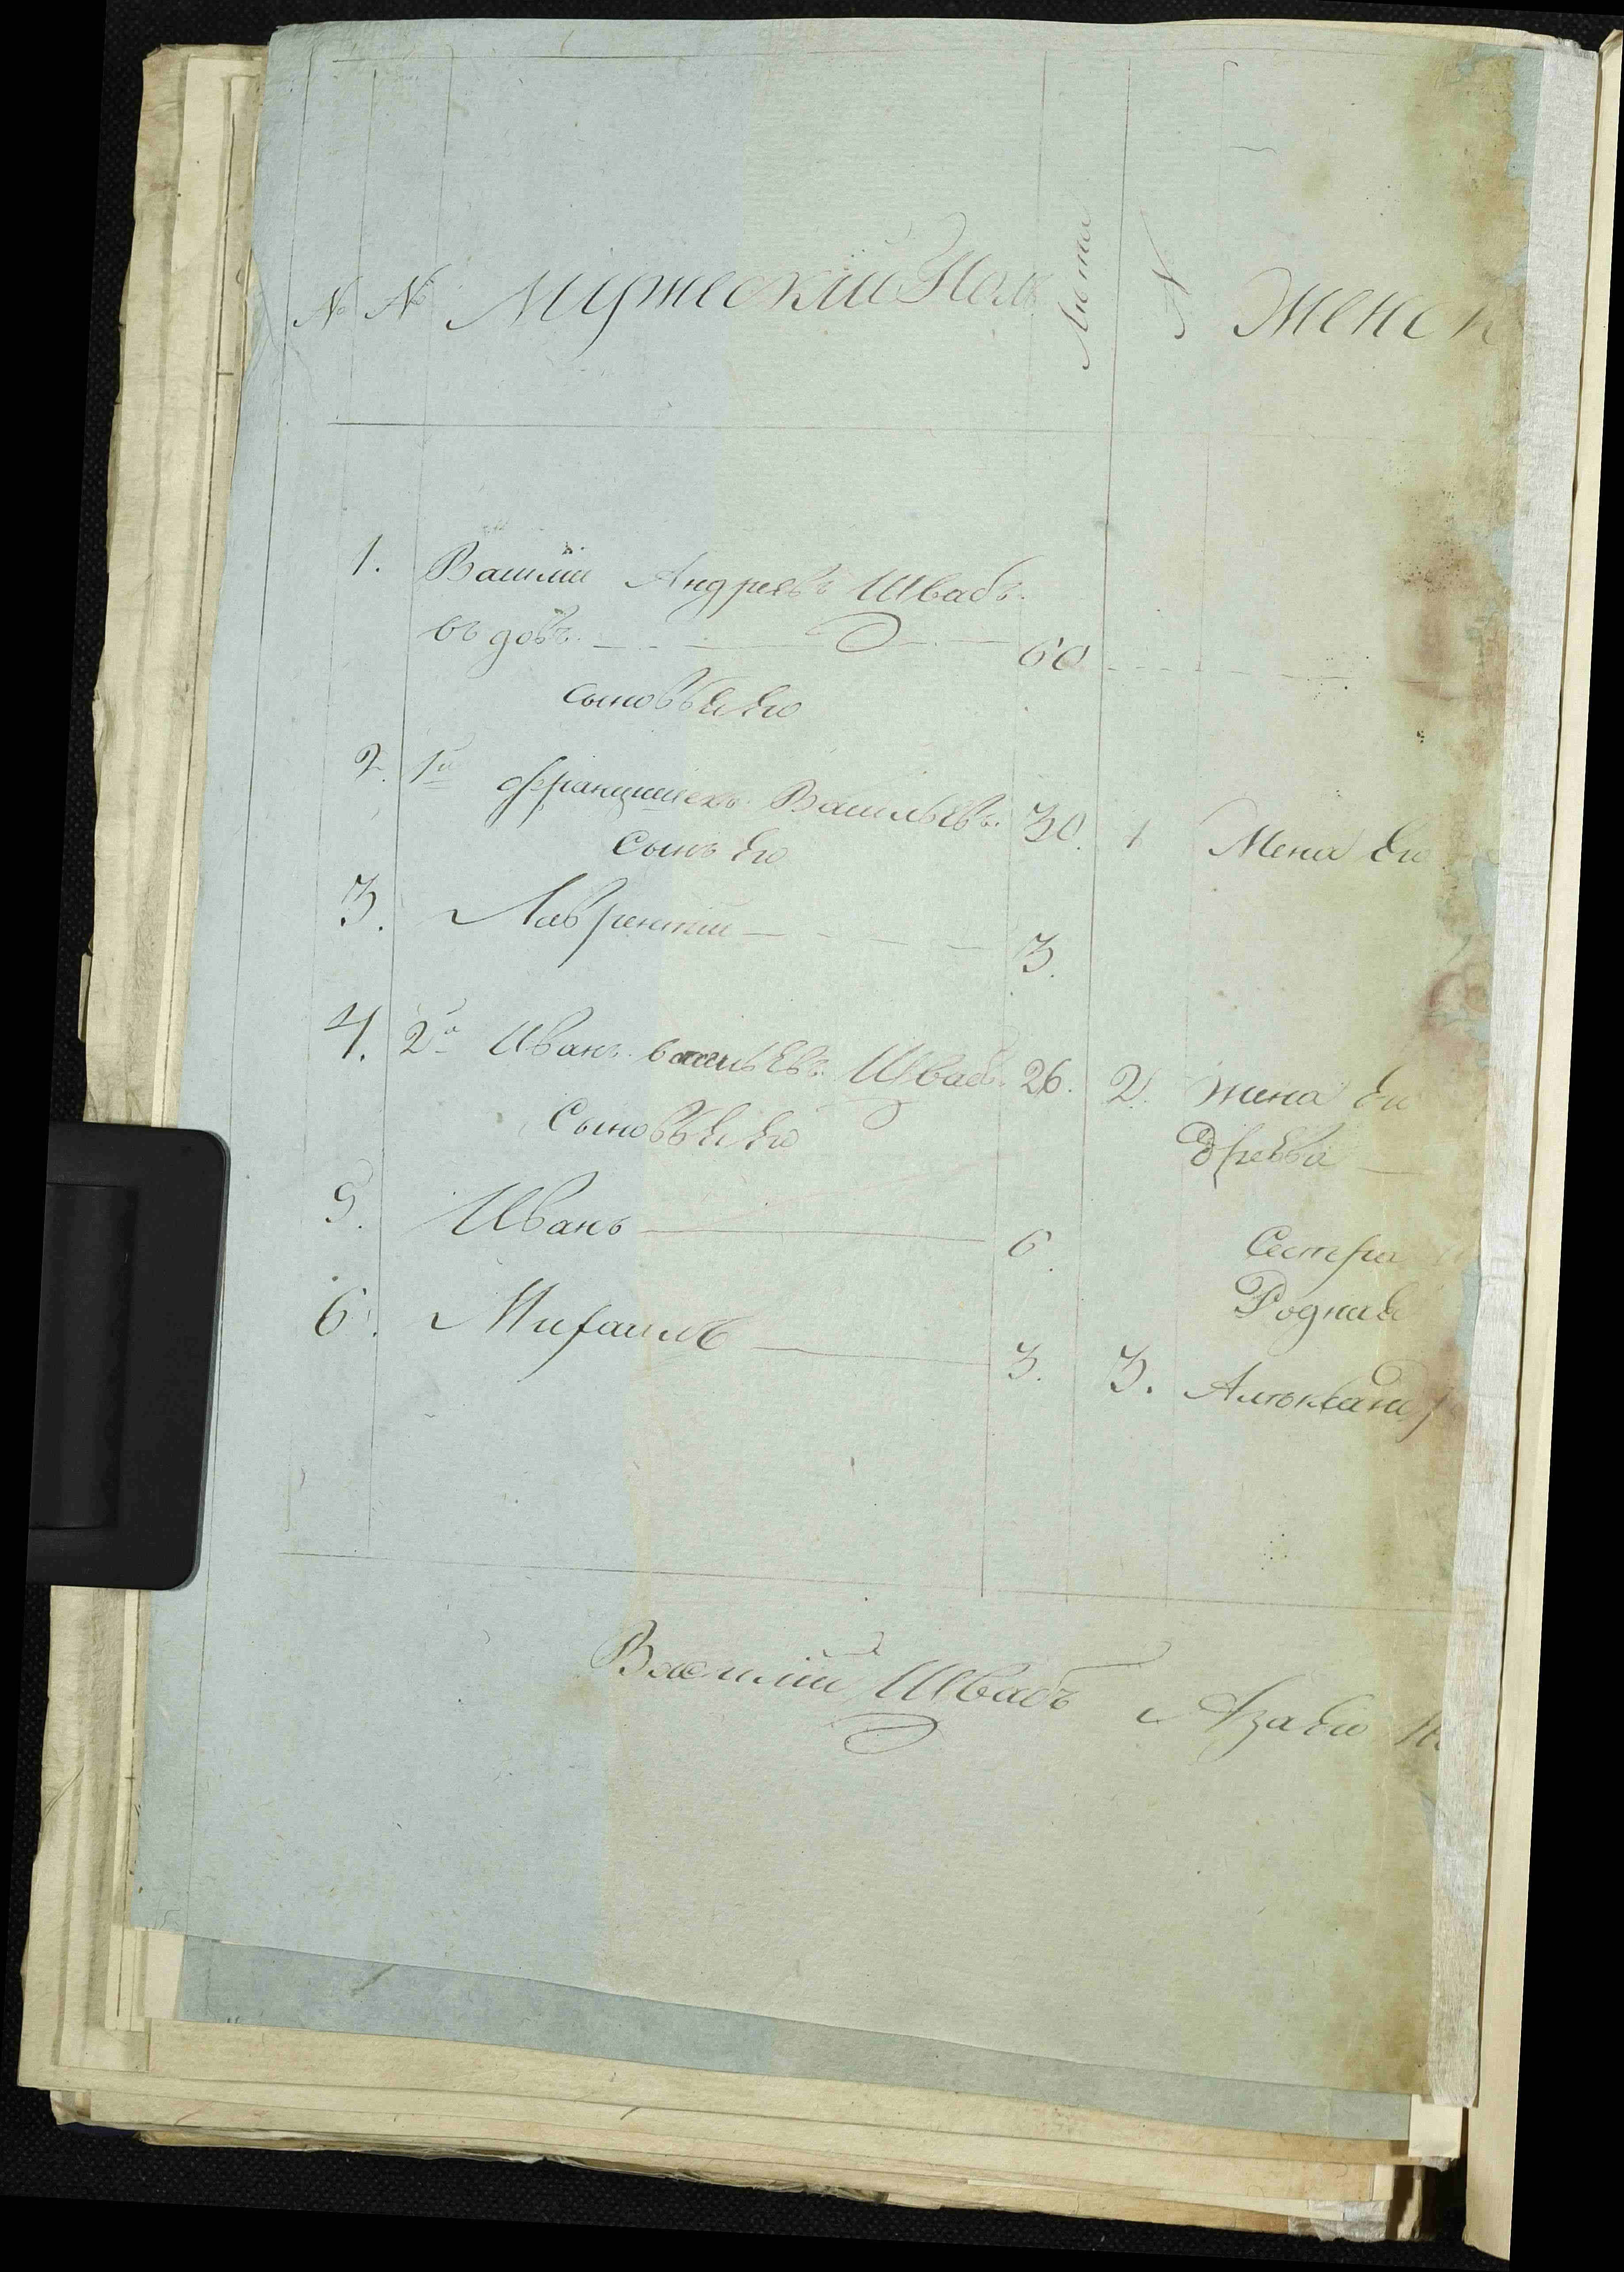 № № Мужескій Полъ Лѣты № Женск
1. Василій Андреевъ Швабъ.
въдовъ 60
сыновьЯ Его
2. 1й Францишекъ Васильевъ. 30. 1 Жена Его
Сынъ Его
3. Лаврентій 3.
4. 2й Иванъ васильЕвъ Швабъ 26. 2. жена Его
СыновьЯ Его дреЕва
5. Иванъ 6. Сестра
Родная
6. Михаилъ 3. 3. Алѣксанд
Василій Швабъ Аза Его